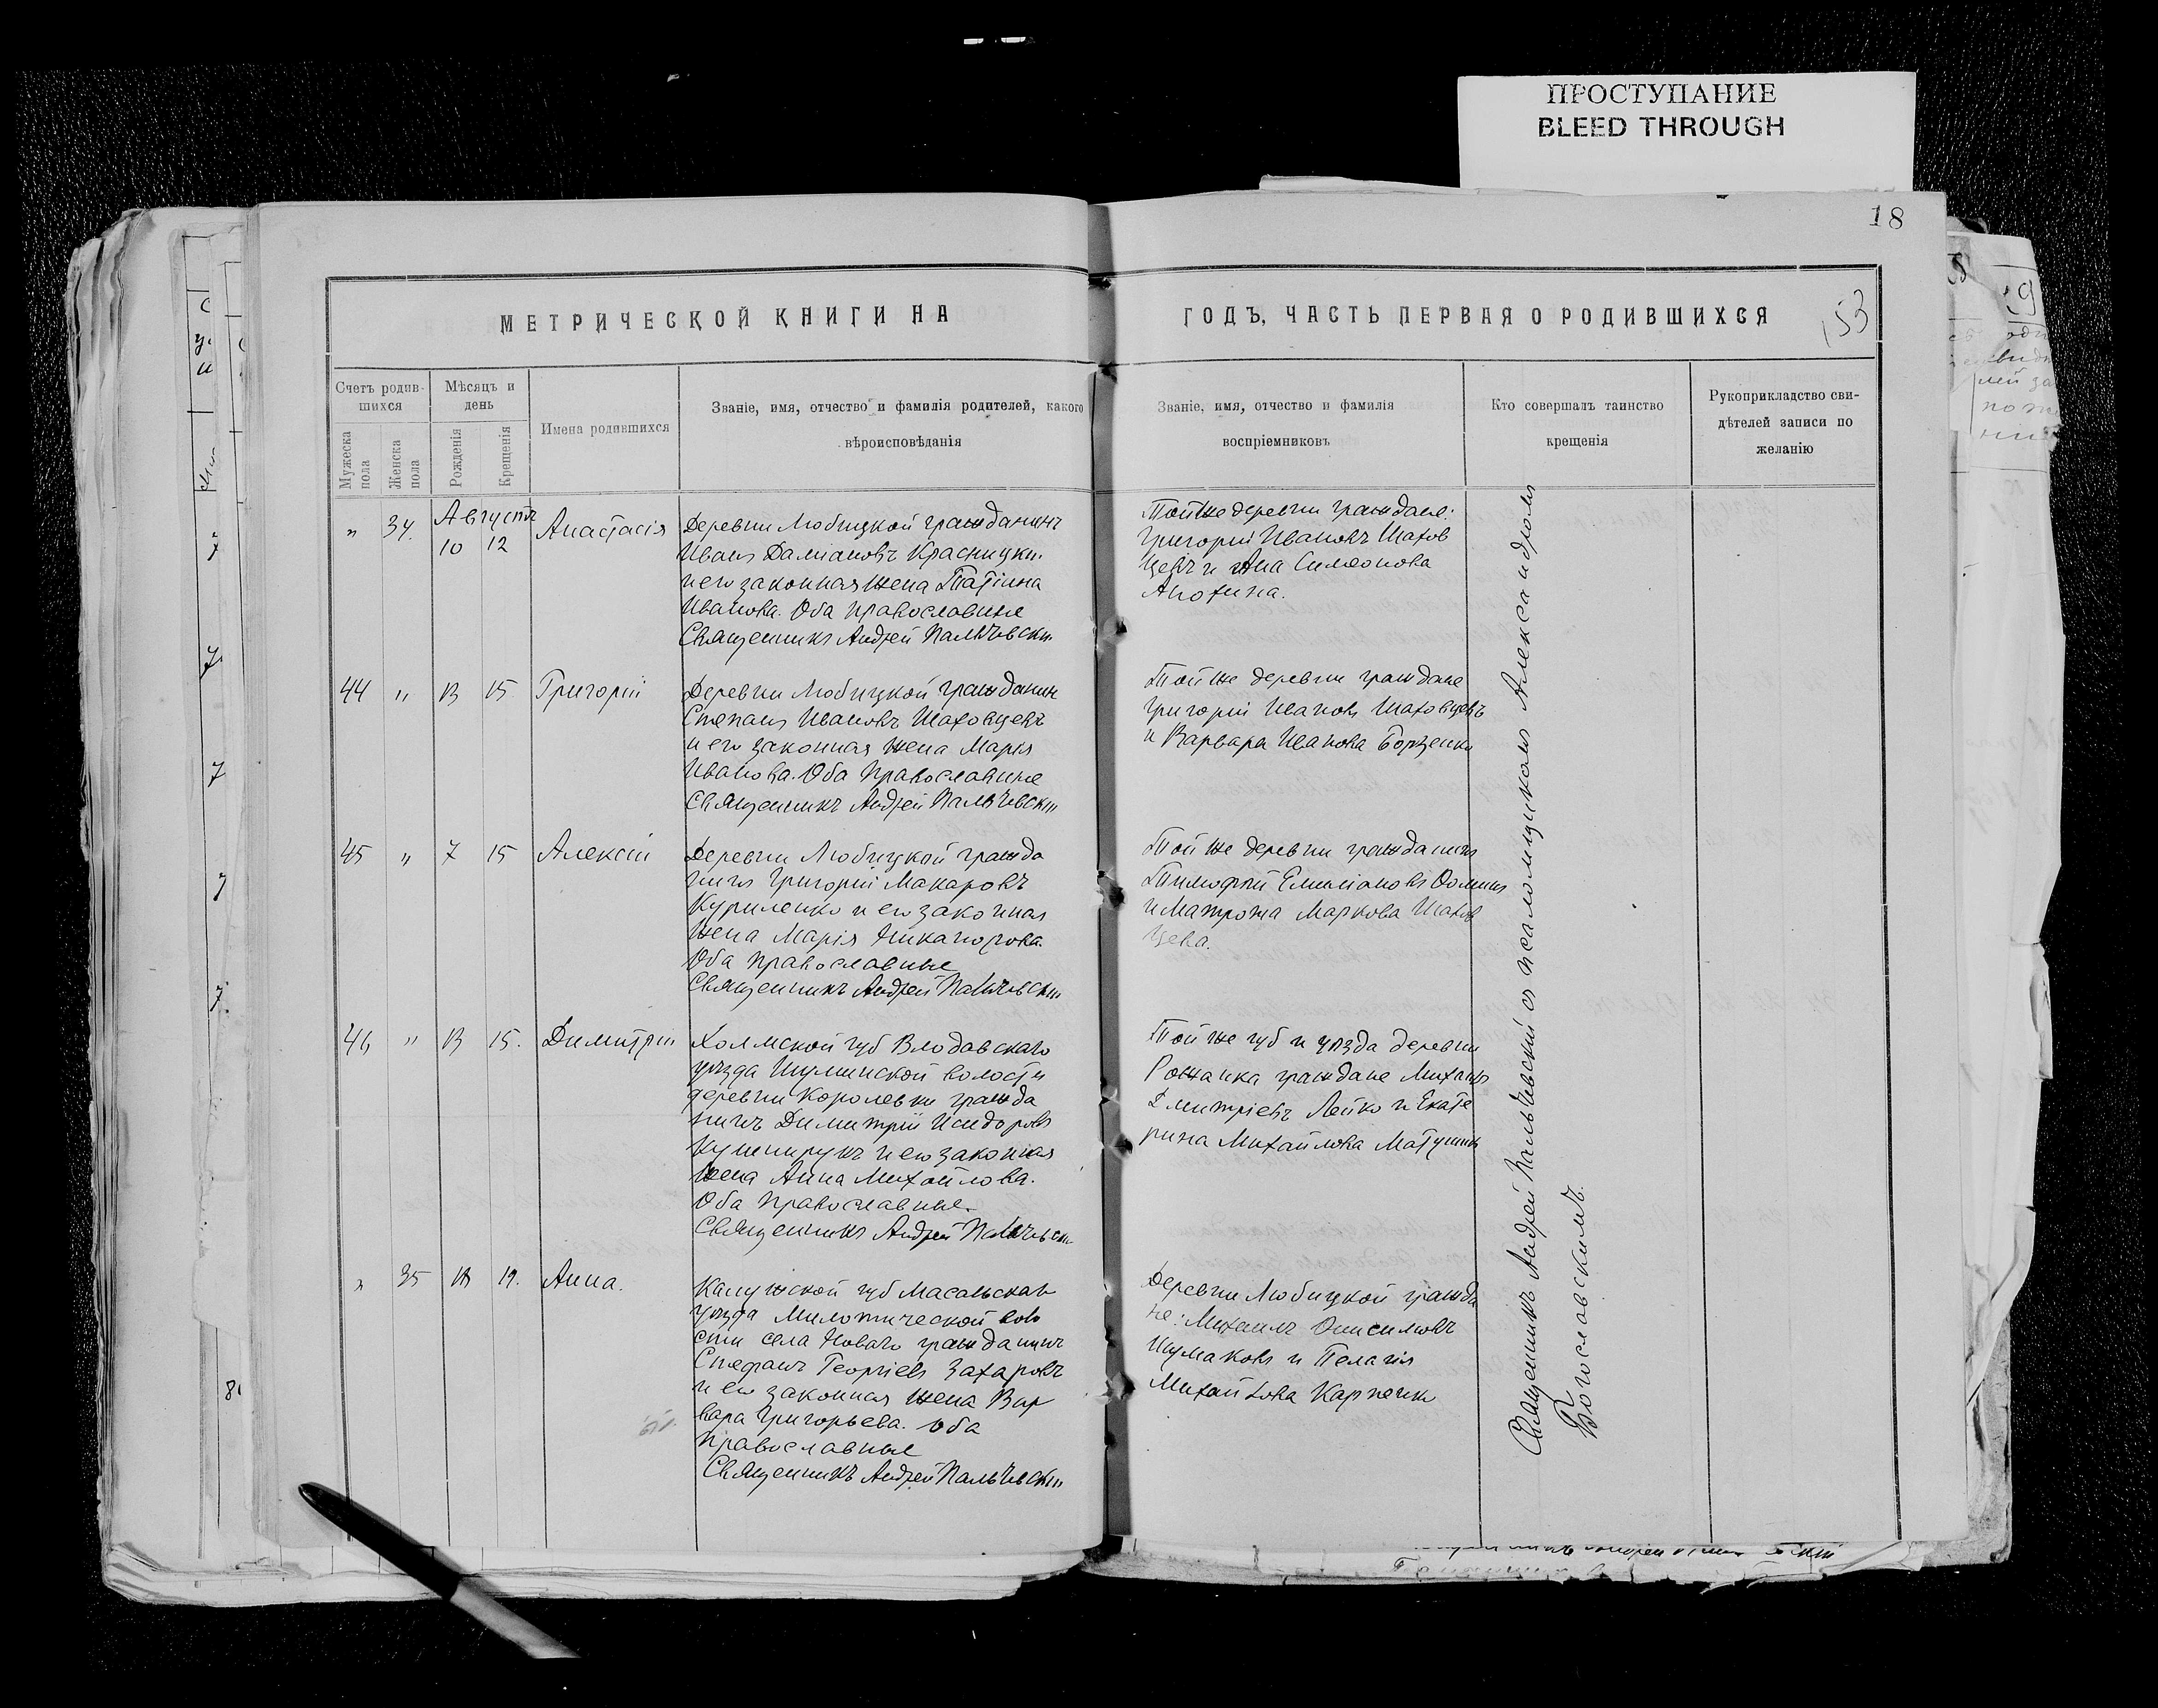 ПРОСТУПАНИЕ
BLEED THROUGH
18
МЕТРИЧЕСКОЙ КНИГИ НА
ГОДЪ, ЧАСТЬ ПЕРВАЯ О РОДИВШИХСЯ
153
Счетъ родив-
шихся
Мужеска
пола
Женска
пола
Мѣсяцъ и
день
Рожденія
Крещенія
Имена родившихся
Званіе, имя, отчество и фамилія родителей, какого
вѣроисповѣданія
Званіе, имя, отчество и фамилія
воспріемниковъ
Кто совершалъ таинство
крещенія
Рукоприкладство сви-
дѣтелей записи по
желанію
" 34. Августа
10 12
Анастасія
Деревни Любицкой гражданинъ
Иванъ Даміановъ Красницкій
и его законная жена Татіана
Иванова. Оба православные
Священникъ Андрей Пальчевскій
Той же деревни граждане:
Григорій Ивановъ Шахов
цевъ и Анна Симеонова
Анохина.
44 " 13 15 Григорій
Деревни Любицкой гражданинъ
Степанъ Ивановъ Шаховцевъ
и его законная жена Марія
Иванова. Оба православные
Священникъ Андрей Пальчевскій
Той же деревни граждане
Григорій Ивановъ Шаховцевъ
и Варвара Иванова Борзенко
45 " 7 15 Алексій
Деревни Любицкой гражда
нинъ Григорій Макаровъ
Куриленко и его законная
жена Марія Никанорова.
Оба православные
Священникъ Андрей Пальчевскій
Той же деревни гражданинъ
Тимофей Емиліановъ Фоминъ
и Матрона Маркова Шахов
цева.
46 " 13 15. Димитрій
Холмской губ Влодавскаго
уѣзда
деревни Королевки гражда
нинъ Димитрій Исидоровъ
Кушнирукъ и его законная
жена Анна Михайлова.
Оба православные.
Священникъ Андрей Пальчевскій
Той же губ и уѣзда деревни
Рожанка граждане Михаилъ
Дмитріевъ Лейко и Екате
рина Михайлова
" 35 18 19. Анна.
Калужской губ Масальскаго
уѣзда воло
сти села Новаго гражданинъ
Стефанъ Георгіевъ Захаровъ
и его законная жена Вар
вара Григорьева. Оба
православные
Священникъ Андрей Пальчевскій
Деревни Любицкой гражда
не: Михаилъ Онисимовъ
Шумаковъ и Пелагія
Михайлова Карпенко
Священникъ Андрей Пальчевскій съ псаломщикомъ Александромъ
Богословскимъ.